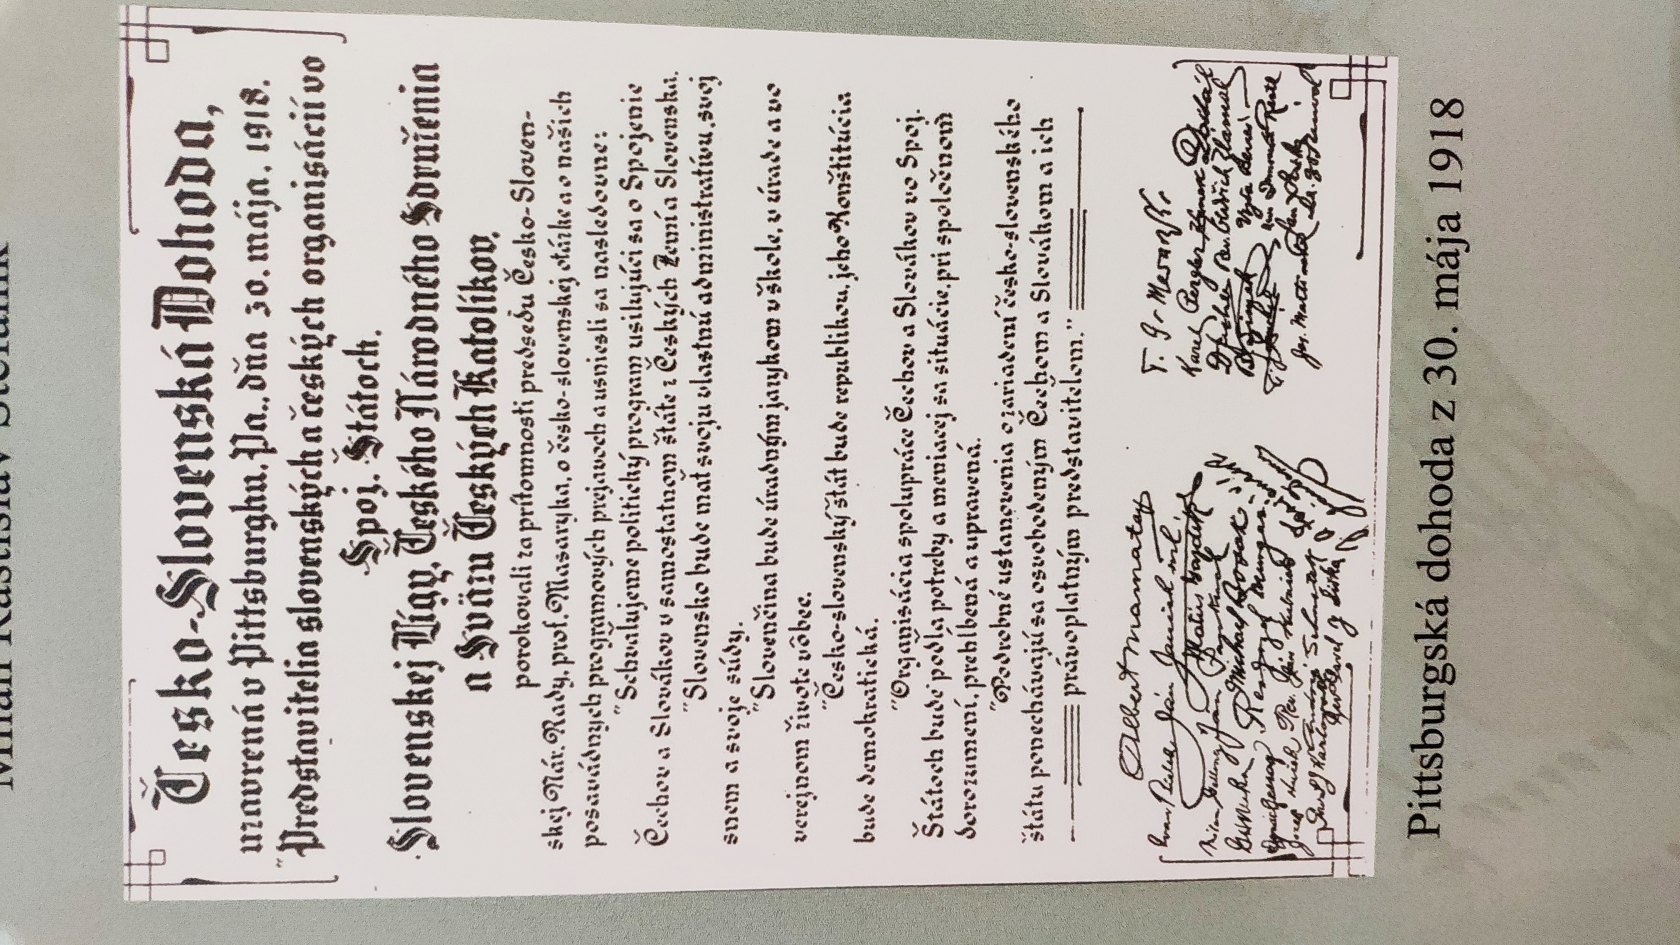 Milan Rastislav Štefánik
Česko-Slovenská Dohoda,
uzavrená v Pittsburghu, Pa., dňa 30. mája, 1918.
"Predstavitelia slovenských a českých organisácií vo
Spoj. Štátoch,
Slovenskej Ligy, Českého Národného Sdruženia
a Sväzu Českých Katolíkov,
porokovali za prítomnosti predsedu Česko-Sloven-
skej Nár. Rady, prof. Masaryka, o česko-slovenskej otázke a o našich
posavádnych programových prejavoch a usniesli sa nasledovne:
"Schvaľujeme politický program usilujúci sa o Spojenie
Čechov a Slovákov v samostatnom štáte z Českých Zemí a Slovenska.
"Slovensko bude mať svoju vlastnú administratívu, svoj
snem a svoje súdy.
"Slovenčina bude úradným jazykom v škole, v úrade a vo
verejnom živote vôbec.
"Česko-slovenský štát bude republikou, jeho Konštitúcia
bude demokratická.
"Organisácia spolupráce Čechov a Slovákov vo Spoj.
Štátoch bude podľa potreby a meniacej sa situácie, pri spoločnom
dorozumení, prehĺbená a upravená.
"Podrobné ustanovenia o zariadení česko-slovenského
štátu ponechávajú sa osvobodeným Čechom a Slovákom a ich
právoplatným predstaviteľom."
Albert Mamatey
T. G. Masaryk
Karel Pergler
Pittsburgská dohoda z 30. mája 1918